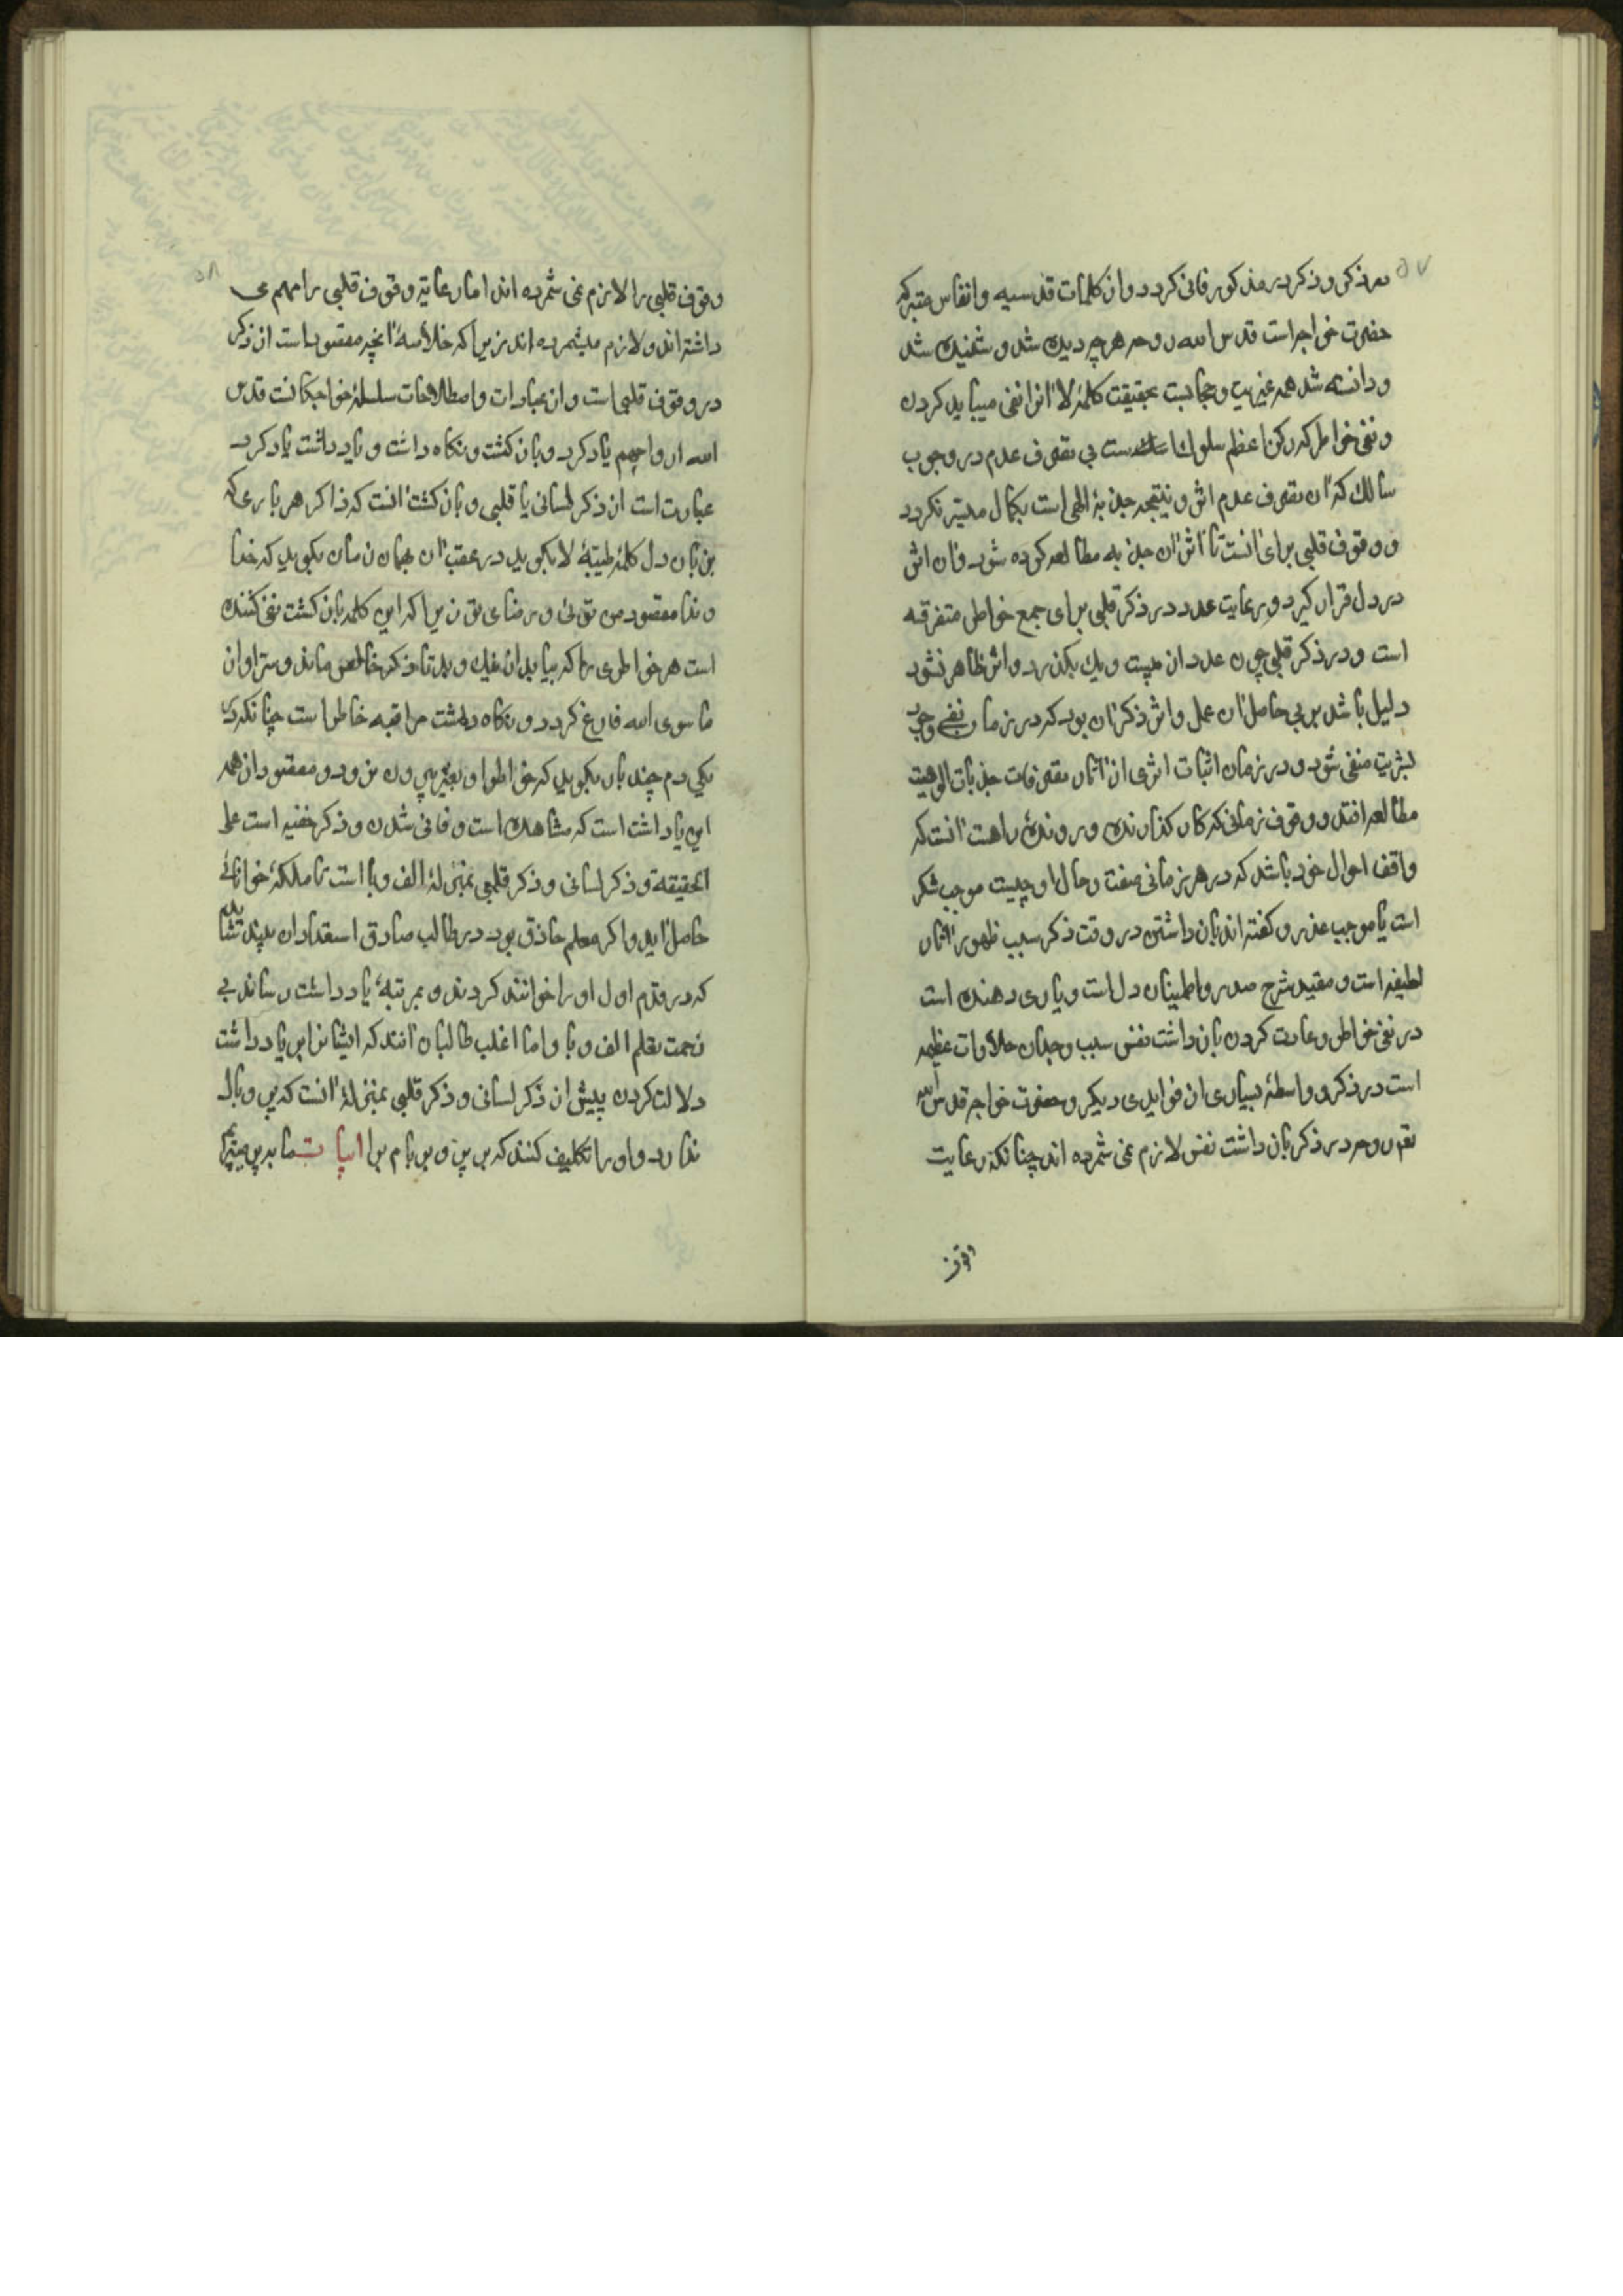 ۵۷
در ذکر و ذکر در مذکور فانی کردد و از کلمات قدسیه و انفاس متبرکه
حضرت خواجه است قدس الله روحه هرچه دیده شد و شنیده شد
و دانسته شد همه غیریت و حجابست بحقیقت کلمهٔ لا آنرا نفی میباید کردن
و نفی خواطر که رکن اعظم سلوک است بی تصرف عدم در وجود
سالک که آن تصرف عدم اثر و نتیجه جذبهٔ الهی است بکمال میسر نکردد
و وقوف قلبی برای آنست تا اثر آن جذبه مطالعه کرده شود و آن اثر
در دل قرار کیرد و رعایت عدد در ذکر قلبی برای جمع خواطر متفرقه
است و در ذکر قلبی چون عدد از بیست و یک بکذرد و اثر ظاهر نشود
دلیل باشد بر بی حاصل آن عمل و اثر ذکر آن بود که در زمان نفی وجود
بشریت منفی شود و در زمان اثبات اثری از آثار تصرفات جذبات الوهیت
مطالعه افتد و وقوف زمانی که کار کذارنده و رونده راهست آنست که
واقف احوال خود باشد که در هر زمانی صفت و حال او چیست موجب شکر
است یا موجب عذر و کفته اند باز داشتن در وقت ذکر سبب ظهور آثار
لطیفه است و مفید شرح صدر و اطمینان دل است و یاری دهنده است
در نفی خواطر و عادت کردن باز داشت نفس سبب وجدان حلاوات عظیمه
است در ذکر و واسطهٔ بسیاری از فوایدی دیکر و حضرت خواجه قدس الله
تعم روحه در ذکر باز داشت نفس لازم نمی شمرده اند چنانکه رعایت
وقوف
۵۸
وقوف قلبی را لازم نمی شمرده اند اما رعایة وقوف قلبی را مهم می
داشته اند و لازم میشمرده اند زیرا که خلاصهٔ آنچه مقصود است از ذکر
در وقوف قلبی است و از عبارات و اصطلاحات سلسلهٔ خواجکانست قدس
الله ارواحهم یاد کرد و باز کشت و نکاه داشت و یاد داشت یاد کرد
عبارت است از ذکر لسانی یا قلبی و باز کشت آنست که ذاکر هر باری که
بزبان دل کلمهٔ طیبهٔ لا بکوید در عقب آن بهمان زمان بکوید که خدا
وندا مقصود من توئی و رضای تو زیرا که این کلمه باز کشت نفی کننده
است هر خواطری را که بیاید از نیک و بد تا ذکر خالص ماند و سر او از
ماسوی الله فارغ کردد و نکاه داشت مراقبه خاطر است چنانکه در
یکی دم چند بار بکوید که خواطر او بغیر بیرون نرود و مقصود از همه
این یاد داشت است که مشاهده است و فانی شدن و ذکر خفیه است علی
الحقیقة و ذکر لسانی و ذکر قلبی بمنزلهٔ الف و با است تا ملکهٔ خوانائی
حاصل آید و اکر معلم حاذق بود در طالب صادق استعداد آن بیند شاید
که در قدم اول او را خوانند کردند و بمرتبهٔ یاد داشت رساند بی
زحمت تعلم الف و با و اما اغلب طالبان آنند که ایشانرا بر یاد داشت
دلالت کردن پیش از ذکر لسانی و ذکر قلبی بمنزلهٔ آنست که پر و بال
ندارد و او را تکلیف کنند که بر پر و بر بام برا